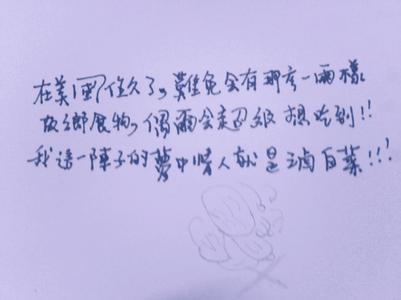 在美國住久了，難免會有那麼一兩樣
故鄉食物，偶爾會超級想吃到!!
我這一陣子的夢中情人就是滷白菜!!!